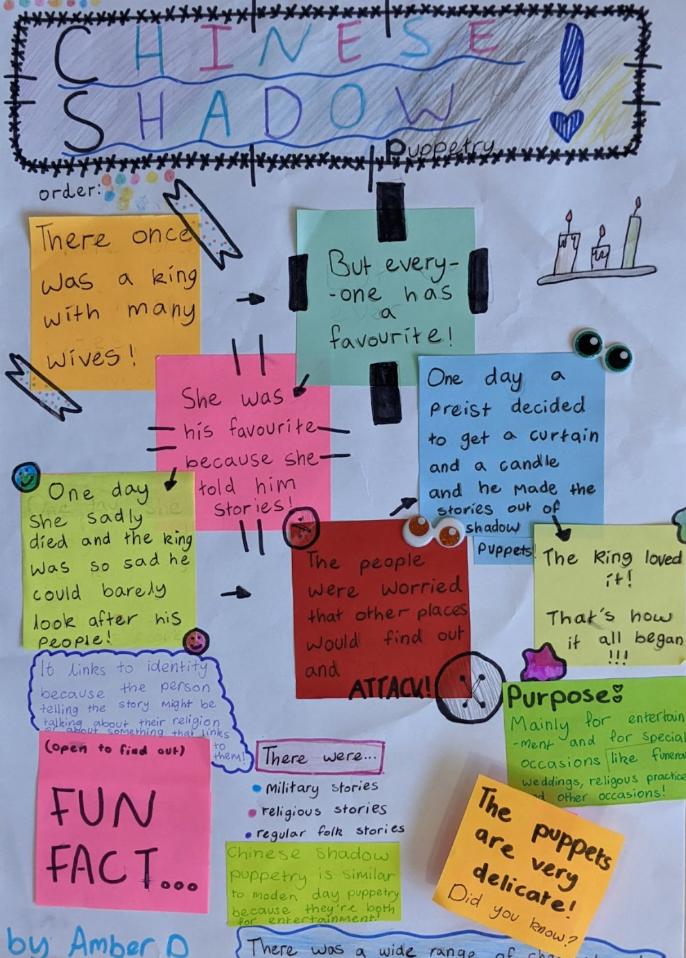 CHINESE
SHADOW!
Puppetry
order:
There once
was a king
with many
wives!
But every-
-one has
a
favourite!
She was
his favourite
because she
told him
stories!
One day
she sadly
died and the king
was so sad he
could barely
look after his
people!
The people
were worried
that other places
would find out
and
ATTACK!
One day a
Preist decided
to get a curtain
and a candle
and he made the
stories out of
shadow
Puppets!
The king loved
it!
That's how
it all began
!!!
It links to identity
because the person
telling the story might be
talking about their religion
or about something that links
to
them!
Purpose:
Mainly for entertain
-ment and for special
occasions like funeral
weddings, religous practice
and other occasions!
(open to find out)
FUN
FACT...
There were...
Military stories
religious stories
regular folk stories
Chinese shadow
puppetry is similar
to moden day puppetry
because they're both
for entertainment!
The puppets
are very
delicate!
Did you know?
by Amber D
There was a wide range of